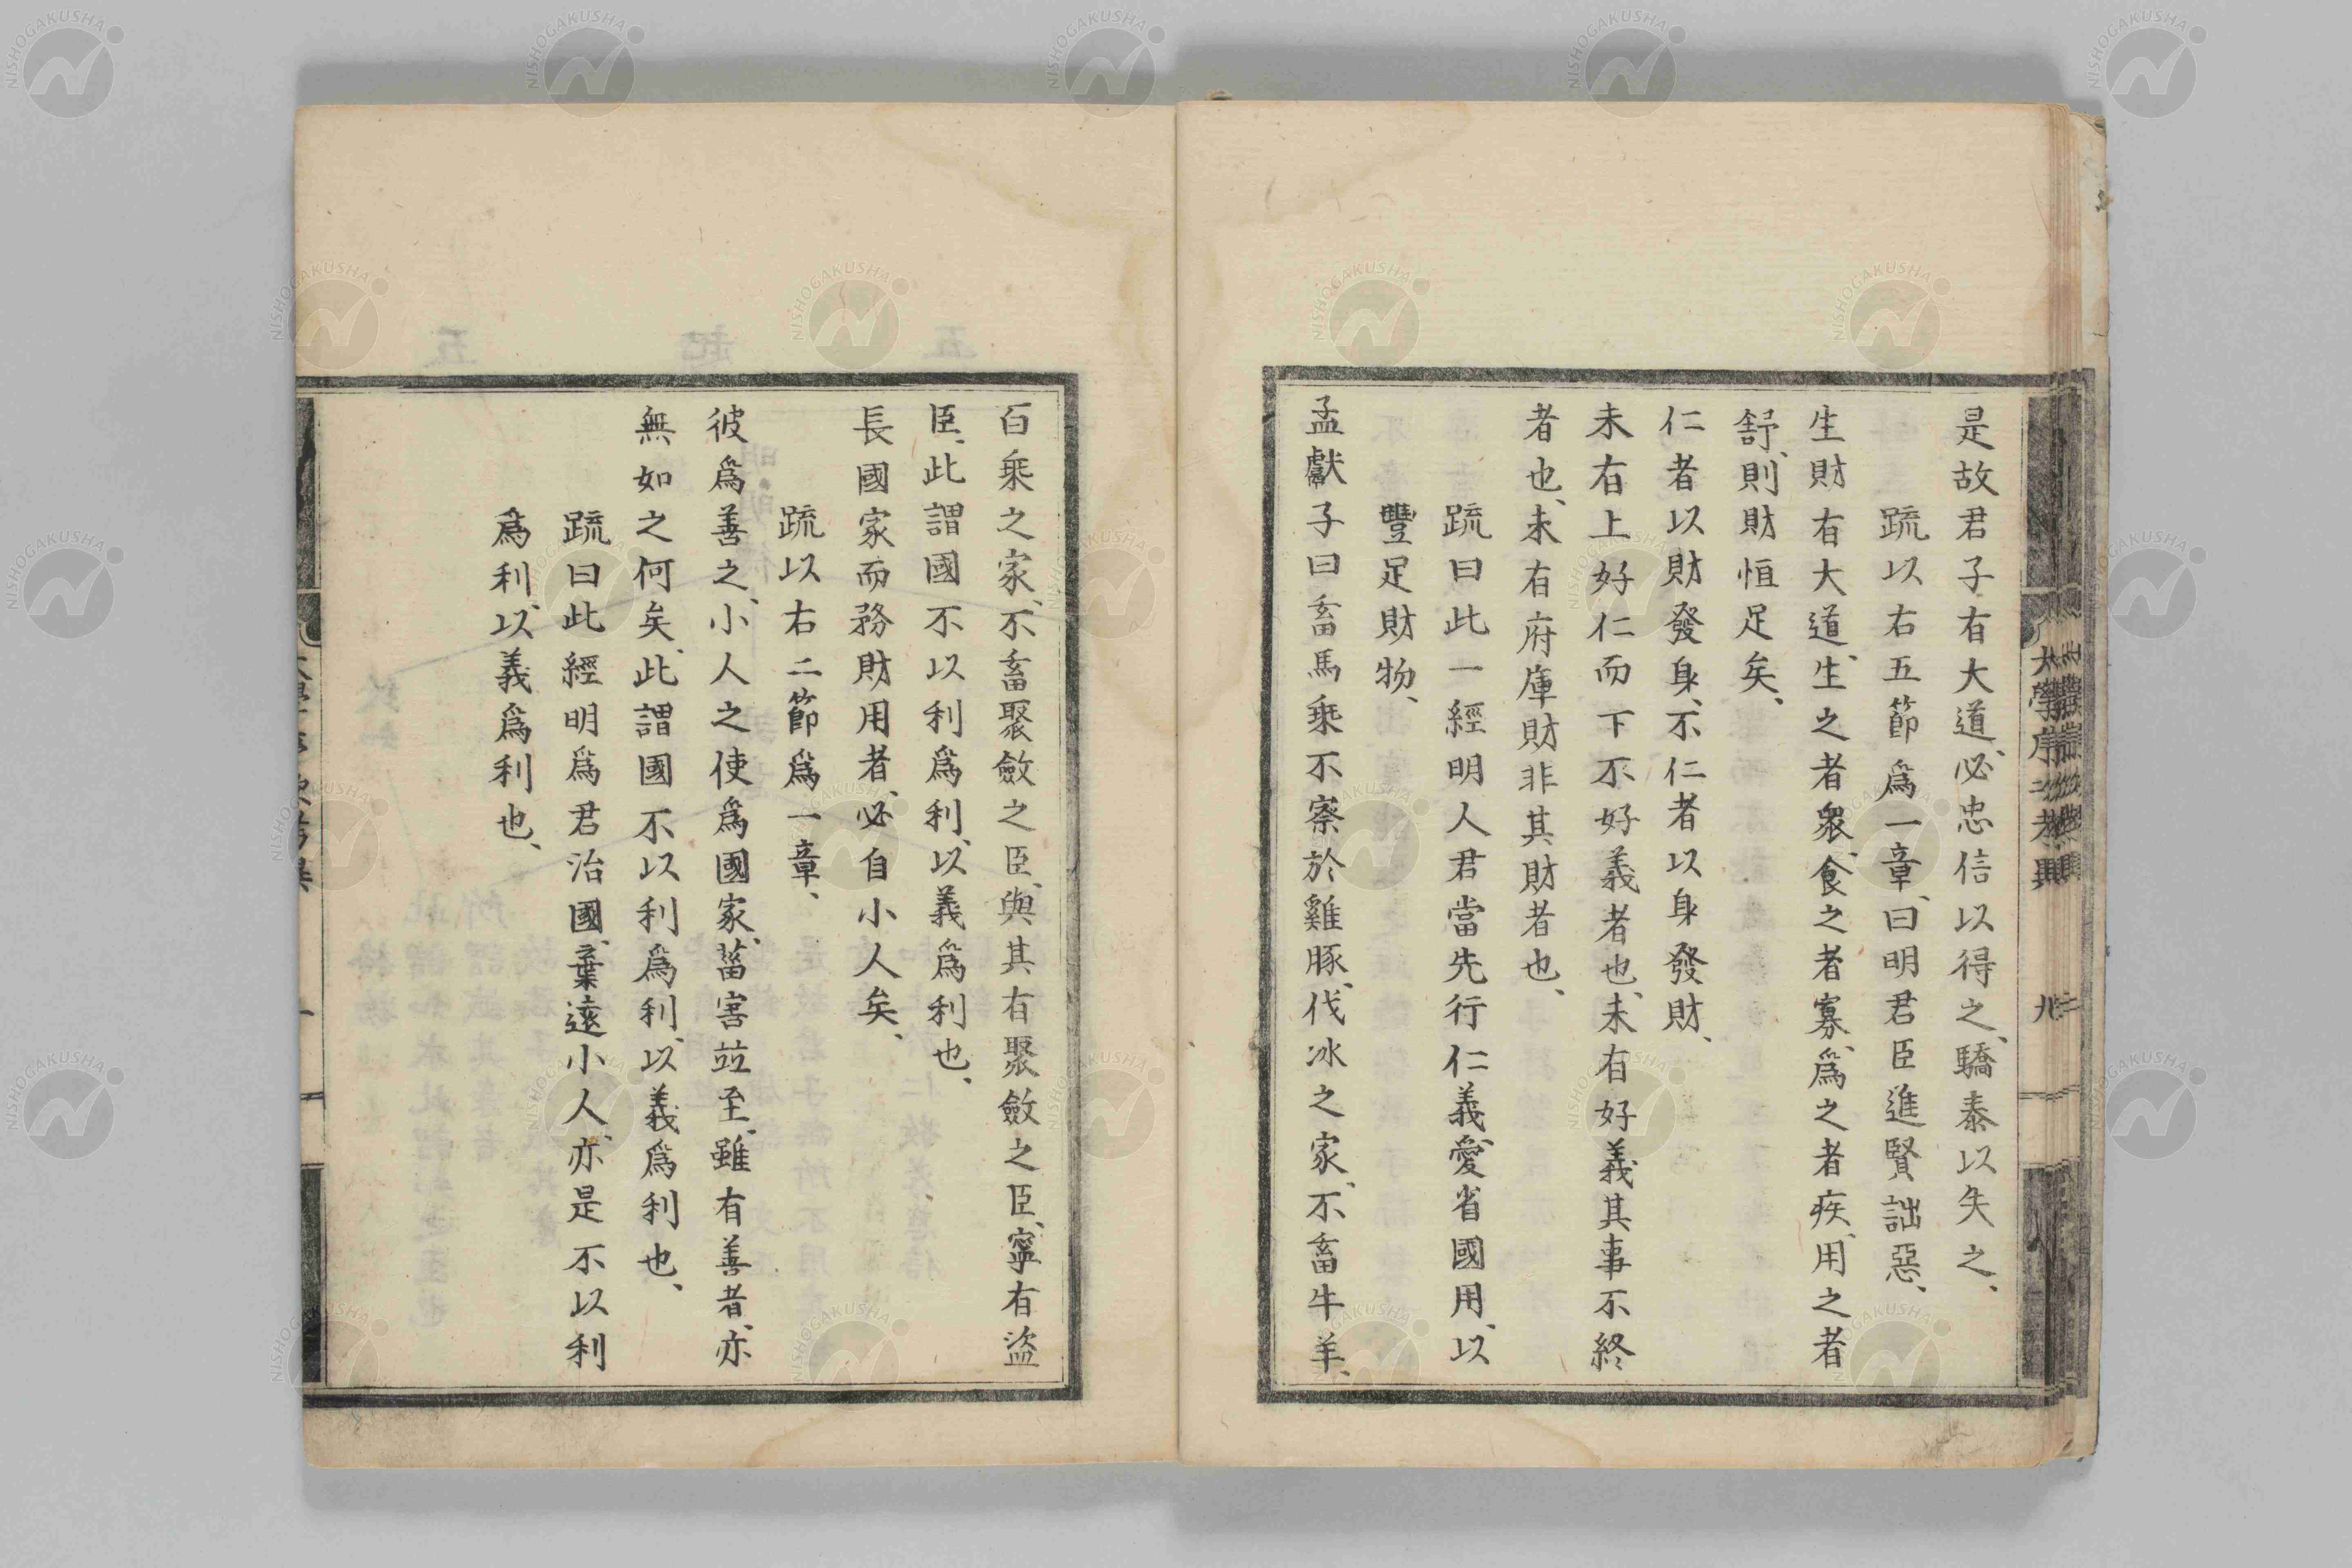 是故君子有大道、必忠信以得之、驕泰以失之、
疏以右五節爲一章、曰明君臣進賢詘惡、
生財有大道、生之者衆、食之者寡、爲之者疾、用之者
舒、則財恒足矣、
仁者以財發身、不仁者以身發財、
未有上好仁而下不好義者也、未有好義其事不終
者也、未有府庫財非其財者也、
疏曰此一經明人君當先行仁義、愛省國用、以
豐足財物、
孟獻子曰畜馬乘不察於雞豚、伐冰之家、不畜牛羊、
百乘之家、不畜聚斂之臣、與其有聚斂之臣、寧有盜
臣、此謂國不以利爲利、以義爲利也、
長國家而務財用者、必自小人矣、
疏以右二節爲一章、
彼爲善之、小人之使爲國家、菑害竝至、雖有善者、亦
無如之何矣、此謂國不以利爲利、以義爲利也、
疏曰此經明爲君治國、棄遠小人、亦是不以利
爲利、以義爲利也、
NISHOGAKUSHA